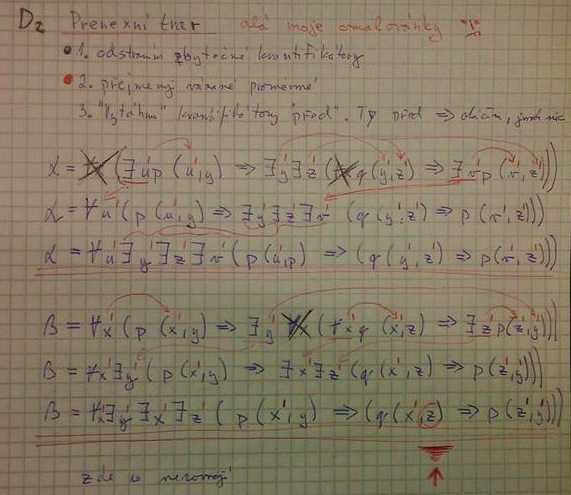 D2 Prenexní tvar alá moje omalovánky
1. odstraním zbytečné kvantifikátory
2. přejmenuj vázané proměnné
3. "Vytáhnu" kvantifikátory "před". Ty před ⇒ otáčím, jinak nic
α = ∀x (∃u'p (u',y) ⇒ ∃y'∃z' (∀x q(y',z') ⇒ ∃v'p (v',z')))
α = ∀u' (p (u',y) ⇒ ∃y'∃z'∃v' (q(y',z') ⇒ p (v',z')))
α = ∀u'∃y'∃z'∃v' (p(u',p) ⇒ (q(y',z') ⇒ p(v',z')))
β = ∀x' (p (x',y) ⇒ ∃y' ∀x (∀x'q (x',z) ⇒ ∃z'p(z',y')))
β = ∀x'∃y' (p(x',y) ⇒ ∃x'∃z' (q(x',z) ⇒ p(z',y')))
β = ∀x'∃y'∃x'∃z' (p (x',y) ⇒ (q(x',z) ⇒ p(z',y')))